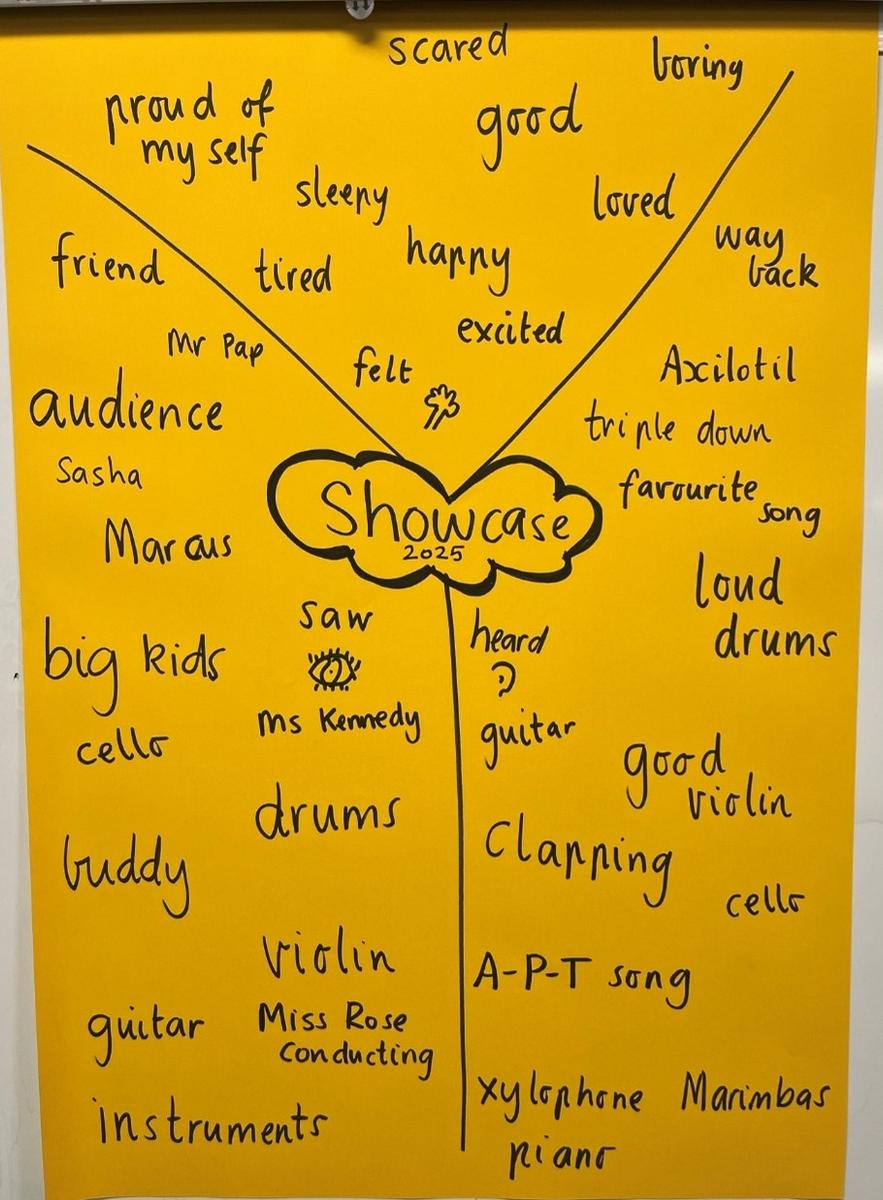 scared
boring
proud of
my self
good
sleepy
loved
happy
tired
excited
felt
friend
Mr Pap
audience
Sasha
Marcus
way
back
Axilotil
triple down
favourite
song
loud
drums
Showcase
2025
saw
big kids
Ms Kennedy
cello
drums
buddy
violin
guitar
Miss Rose
Conducting
instruments
heard
guitar
good
violin
Clapping
cello
A-P-T song
xylophone Marimbas
piano